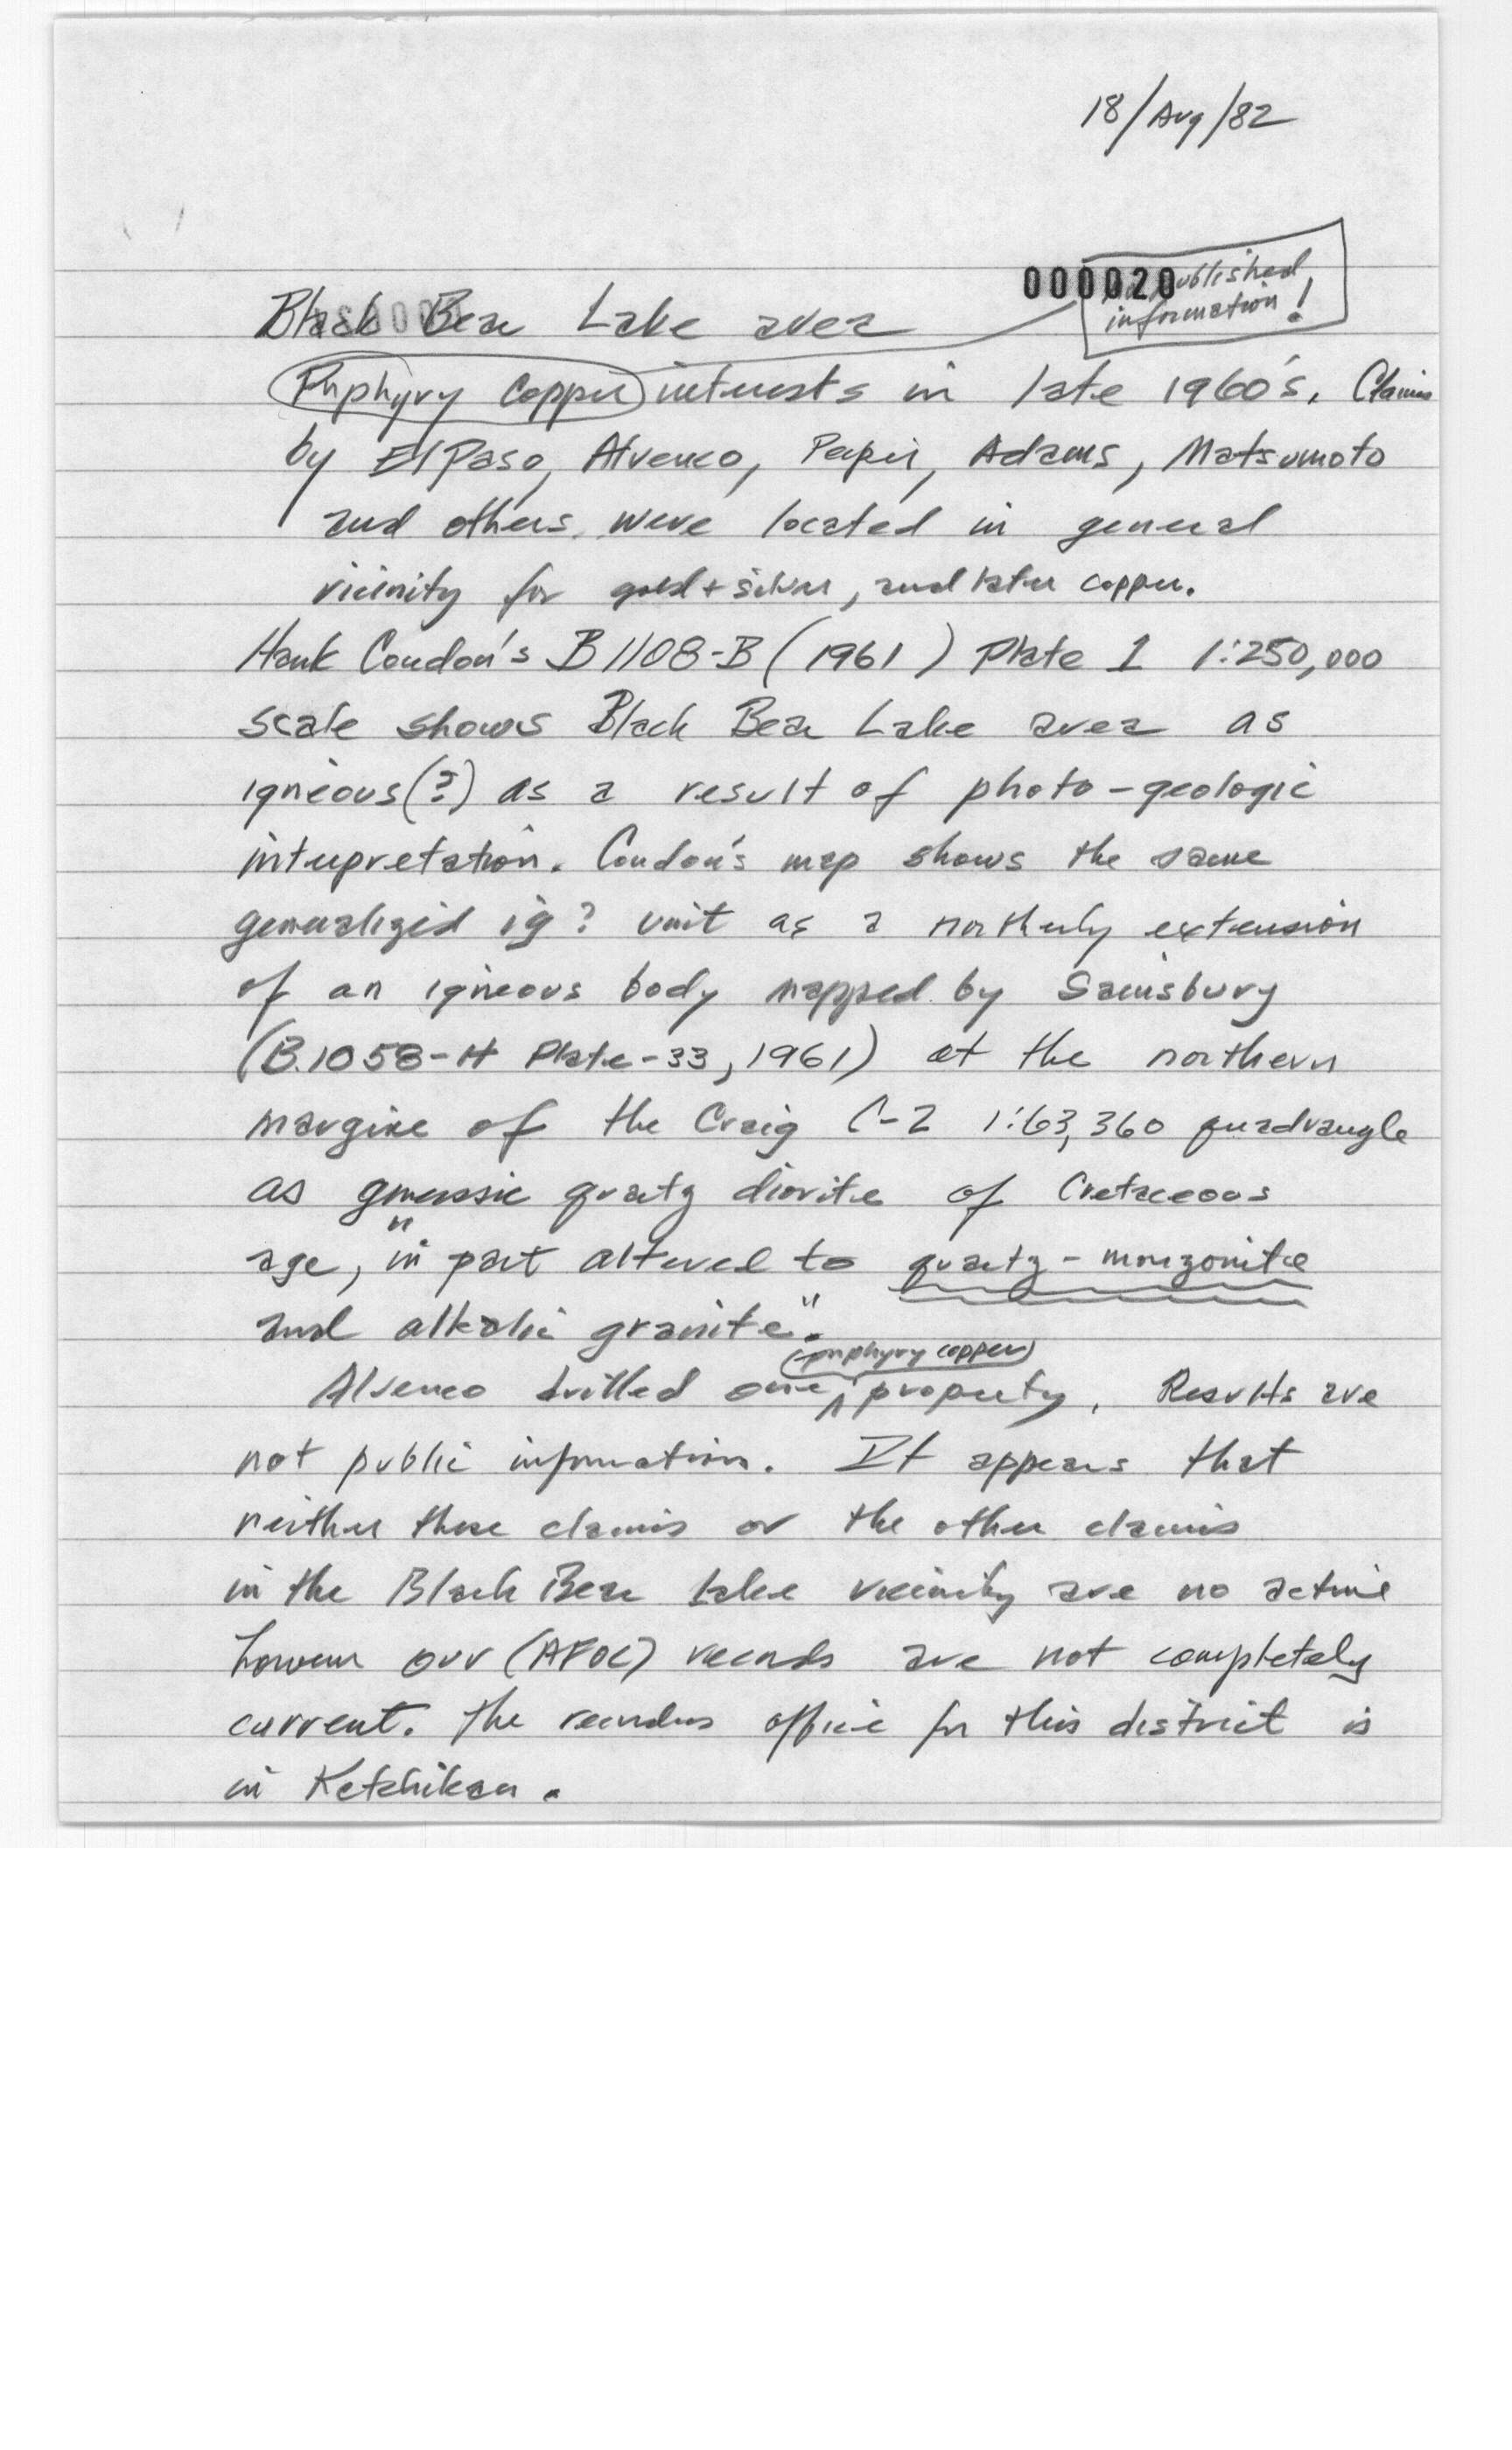 18/Aug/82
000020
published
information!
Black Bear Lake area
Porphyry Copper interests in late 1960's. Claims
by El Paso, Alvenco, Adams, Matsumoto
and others were located in general
vicinity for gold + silver, and later copper.
Hank Condon's B1108-B (1961) Plate 1 1:250,000
scale shows Black Bear Lake area as
igneous(?) as a result of photo-geologic
interpretation. Condon's map shows the same
generalized ig? unit as a northerly extension
of an igneous body mapped by Sainsbury
(B.1058-H Plate-33, 1961) at the northern
margine of the Craig C-2 1:63,360 quadrangle
as gneissic quartz diorite of Cretaceous
age, "in part altered to quartz-monzonite
and alkalic granite".
(porphyry copper)
Alvenco drilled one property. Results are
not public information. It appears that
neither these claims or the other claims
in the Black Bear Lake vicinity are no active
however our (AFOC) records are not completely
current. The recorders office for this district is
in Ketchikan.